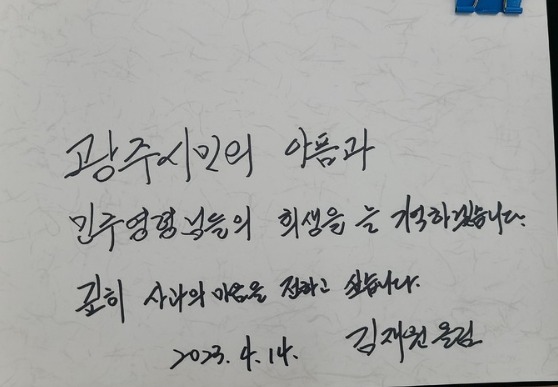 광주시민의 아픔과
민주영령님들의 희생을 늘 기억하겠습니다.
깊히 사과의 마음을 전하고 싶습니다.
2023. 4. 14. 김재원 올림